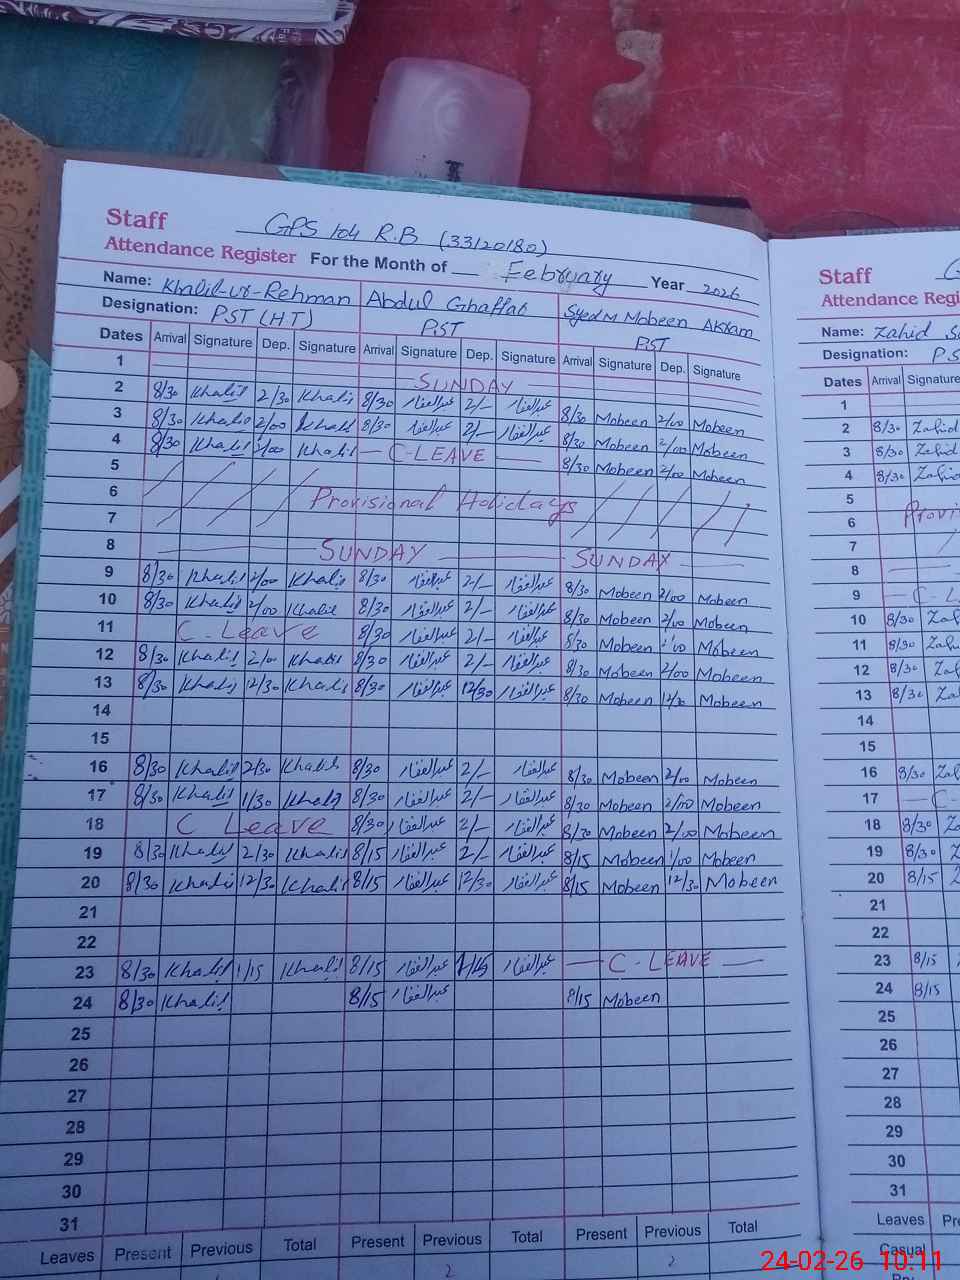 Staff GPS 104 R.B (33120180)
Attendance Register For the Month of February Year 2026
Name: Khalil-ur-Rehman Abdul Ghaffar Syed M Mobeen Akram
Designation: PST (HT) PST PST
Dates Arrival Signature Dep. Signature Arrival Signature Dep. Signature Arrival Signature Dep. Signature
1 SUNDAY
2 8/30 Khalil 2/30 Khalil 8/30 عبدالغفار 2/- عبدالغفار 8/30 Mobeen 2/00 Mobeen
3 8/30 Khalil 2/00 Khalil 8/30 عبدالغفار 2/- عبدالغفار 8/30 Mobeen 2/00 Mobeen
4 8/30 Khalil 2/00 Khalil C-LEAVE 8/30 Mobeen 2/00 Mobeen
5
6 Provisional Holidays
7
8 SUNDAY SUNDAY
9 8/30 Khalil 2/00 Khalil 8/30 عبدالغفار 2/- عبدالغفار 8/30 Mobeen 2/00 Mobeen
10 8/30 Khalil 2/00 Khalil 8/30 عبدالغفار 2/- عبدالغفار 8/30 Mobeen 2/00 Mobeen
11 C-Leave 8/30 عبدالغفار 2/- عبدالغفار 8/30 Mobeen Mobeen
12 8/30 Khalil 2/00 Khalil 8/30 عبدالغفار 2/- عبدالغفار 8/30 Mobeen 2/00 Mobeen
13 8/30 Khalil 12/30 Khalil 8/30 عبدالغفار 12/30 عبدالغفار 8/30 Mobeen 12/30 Mobeen
14
15
16 8/30 Khalil 2/30 Khalil 8/30 عبدالغفار 2/- عبدالغفار 8/30 Mobeen 2/00 Mobeen
17 8/30 Khalil 1/30 Khalil 8/30 عبدالغفار 2/- عبدالغفار 8/30 Mobeen 2/00 Mobeen
18 C Leave 8/30 عبدالغفار 2/- عبدالغفار 8/30 Mobeen 2/00 Mobeen
19 8/30 Khalil 2/30 Khalil 8/15 عبدالغفار 2/- عبدالغفار 8/15 Mobeen 1/00 Mobeen
20 8/30 Khalil 12/30 Khalil 8/15 عبدالغفار 12/30 عبدالغفار 8/15 Mobeen 12/30 Mobeen
21
22
23 8/30 Khalil 1/15 Khalil 8/15 عبدالغفار 1/15 عبدالغفار C-LEAVE
24 8/30 Khalil 8/15 عبدالغفار 8/15 Mobeen
25
26
27
28
29
30
31
Leaves Present Previous Total Present Previous Total Present Previous Total
2 2
Staff
Attendance Regi
Name: Zahid
Designation: PS
Dates Arrival Signature
1
2 8/30 Zahid
3 8/30 Zahid
4 8/30 Zahid
5
6 Provi
7
8
9 C-L
10 8/30 Zah
11 8/30 Zah
12 8/30 Za
13 8/30 Za
14
15
16 8/30 Za
17 C-
18 8/30 Z
19 8/30 Z
20 8/15
21
22
23 8/15
24 8/15
25
26
27
28
29
30
31
Leaves Pre
Casual
24-02-26 10:11